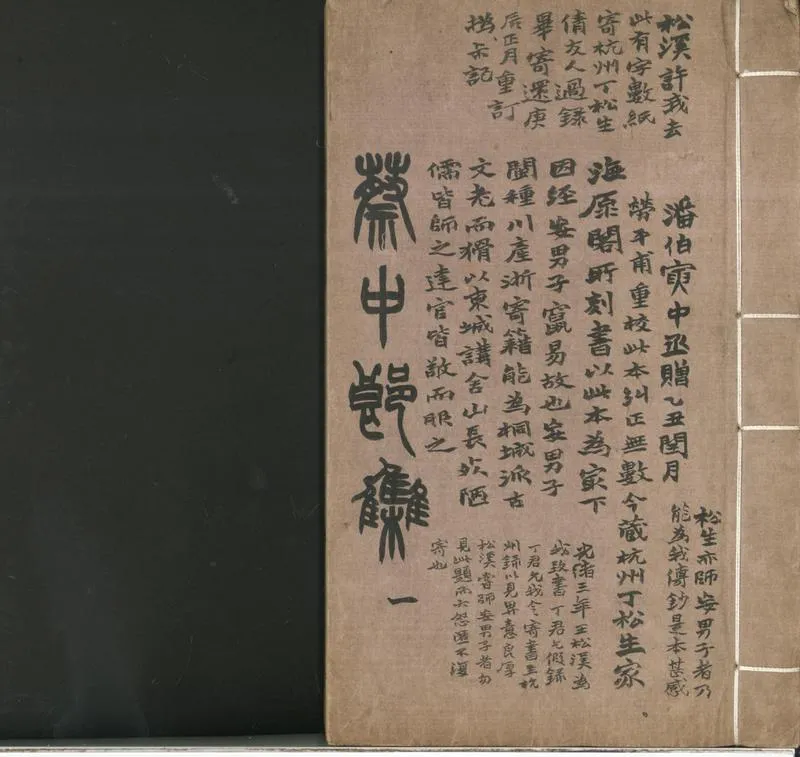 松溪許我去
此有字數紙
寄杭州丁松生
倩友人過錄
畢寄還庚
辰正月重訂
撝叔記
潘伯寅中丞贈乙丑閏月
勞平甫重校此本糾正無數今藏杭州丁松生家
海原閣所刻書以此本為最下
因經安男子竄易故也安男子
閩種川產浙寄籍能為桐城派古
文老而猾以東城講舍山長於陋
儒皆師之達官皆敬而服之
松生亦師安男子者乃
能為我傳鈔是本甚感
光緒三年王松溪為
我致書丁君乞假錄
丁君允我今寄書至杭
州錄以見畀意良厚
松溪嘗師安男子者勿
見此題而大怨匿不復
寄也
蔡中郎集
一